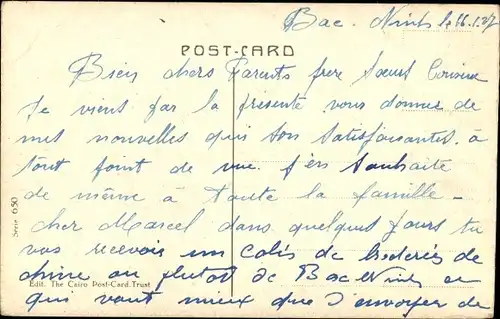 Bac. Ninh le 16.1.27
POST-CARD
Bien chers Parents frere Soeurs Cousine
Je viens par la présente vous donner de
mes nouvelles qui son satisfaisantes. à
tout point de vue. J'en souhaite
de même à toute la famille -
cher Marcel dans quelques jours tu
vas recevoir un colis de broderies de
chine ou plutot de Bac Ninh ce
qui vaut mieux que d'envoyer de
Série 650
Edit. The Cairo Post-Card. Trust